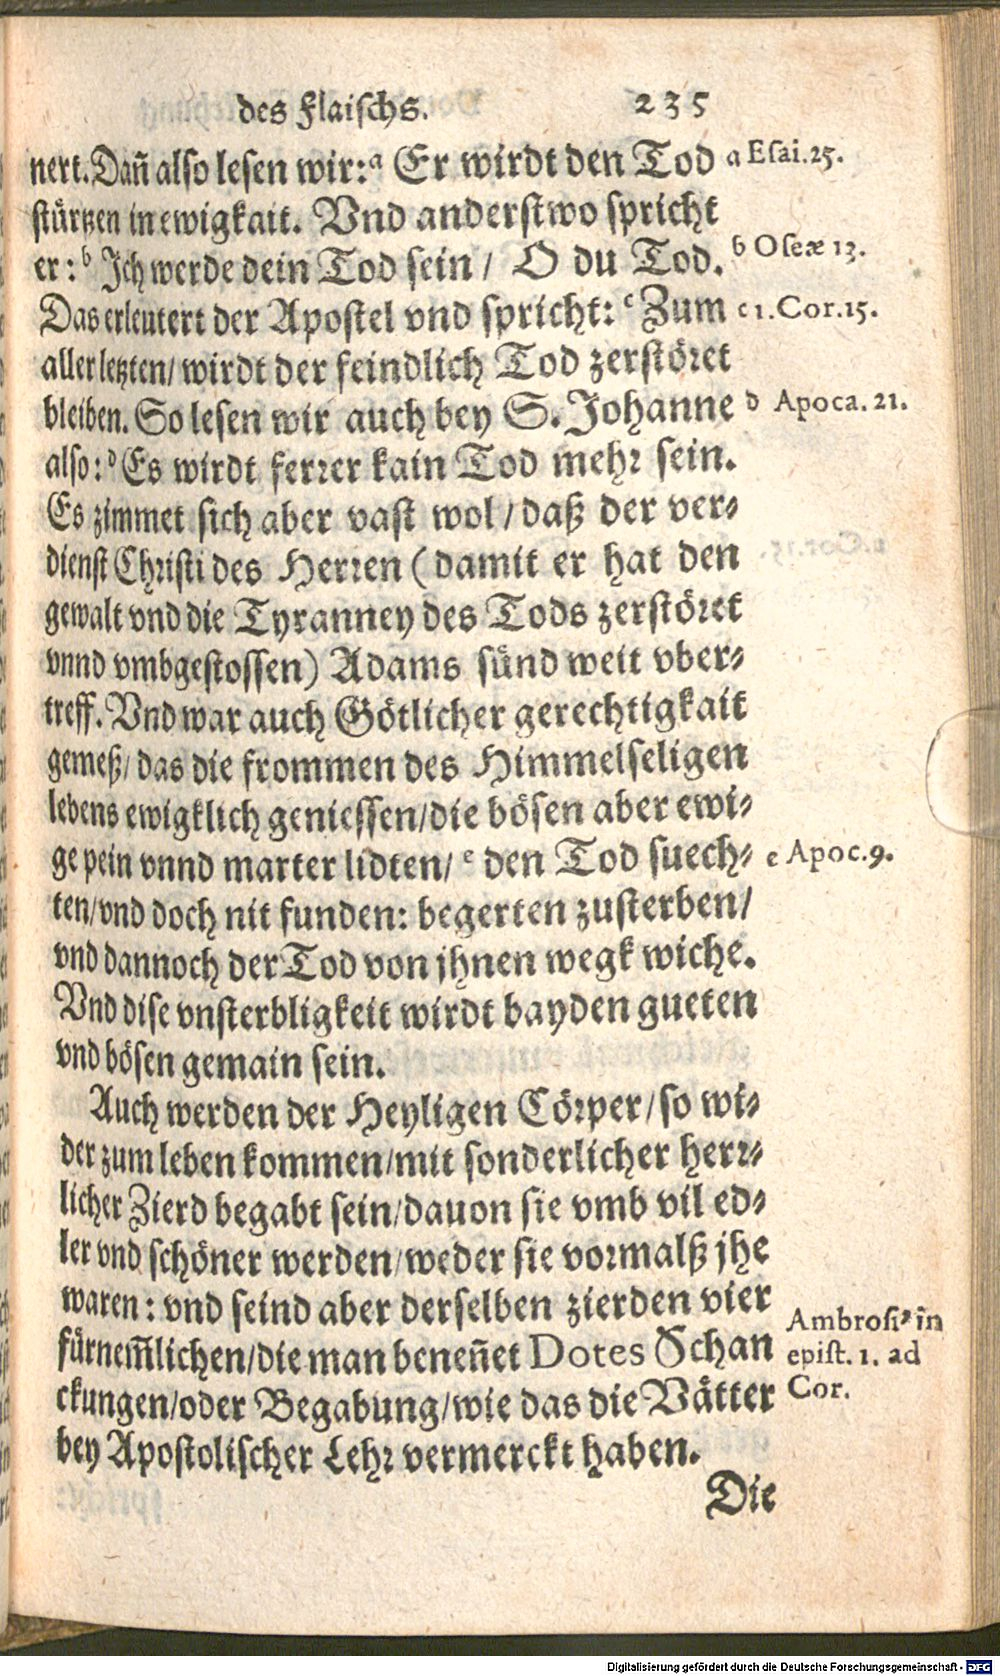 des Flaischs. 235
nert. Dañ also lesen wir: ᵃ Er wirdt den Tod
a Esai. 25.
stürtzen in ewigkait. Vnd anderstwo spricht
er: ᵇ Ich werde dein Tod sein / O du Tod.
b Oseæ 13.
Das erleutert der Apostel vnd spricht: ᶜ Zum
c 1. Cor. 15.
aller letzten / wirdt der feindlich Tod zerstöret
bleiben. So lesen wir auch bey S. Johanne
d Apoca. 21.
also: ᵈ Es wirdt ferrer kain Tod mehr sein.
Es zimmet sich aber vast wol / daß der ver-
dienst Christi des Herren (damit er hat den
gewalt vnd die Tyranney des Tods zerstöret
vnnd vmbgestossen) Adams sünd weit vber-
treff. Vnd war auch Götlicher gerechtigkait
gemeß / das die frommen des Himmelseligen
lebens ewigklich geniessen / die bösen aber ewi-
ge pein vnnd marter lidten / ᵉ den Tod suech-
e Apoc. 9.
ten / vnd doch nit funden: begerten zusterben /
vnd dannoch der Tod von jhnen wegk wiche.
Vnd dise vnsterbligkeit wirdt bayden gueten
vnd bösen gemain sein.
Auch werden der Heyligen Cörper / so wi-
der zum leben kommen / mit sonderlicher herr-
licher Zierd begabt sein / dauon sie vmb vil ed-
ler vnd schöner werden / weder sie vormalß jhe
waren: vnd seind aber derselben zierden vier
fürnem̃lichen / die man beneñet Dotes Schan
ckungen / oder Begabung / wie das die Vätter
bey Apostolischer Lehr vermerckt haben.
Ambrosiꝰ in
epist. 1. ad
Cor.
Die
Digitalisierung gefördert durch die Deutsche Forschungsgemeinschaft - DFG